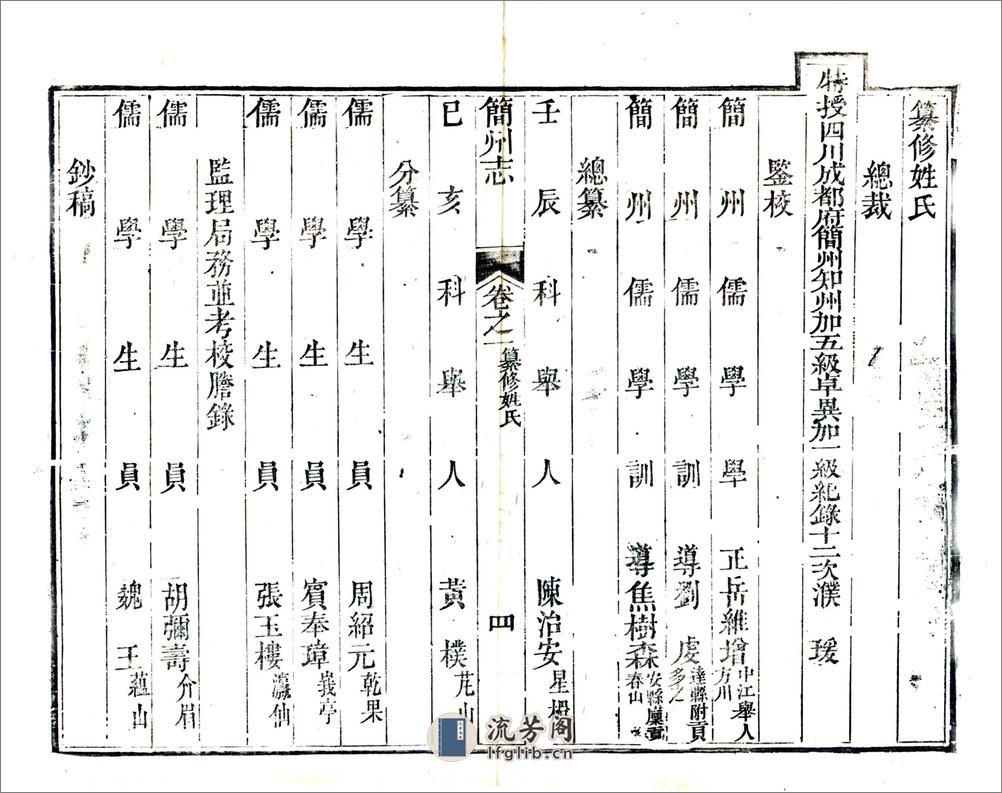 纂修姓氏
總裁
特授四川成都府簡州知州加五級卓異加一級紀錄十二次濮瑗
鑒校
簡州儒學學正岳維增中江舉人方川
簡州儒學訓導劉虔達縣附貢多之
簡州儒學訓導焦樹森安縣廩貢春山
總纂
壬辰科舉人陳治安星
簡州志 卷之一 纂修姓氏 四
己亥科舉人黃樸芃山
分纂
儒學生員周紹元乾果
儒學生員賓奉璋峩亭
儒學生員張玉樓瀛仙
監理局務並考校謄錄
儒學生員胡彌壽介眉
儒學生員魏玉蘊山
鈔稿
流芳阁
lfglib.cn